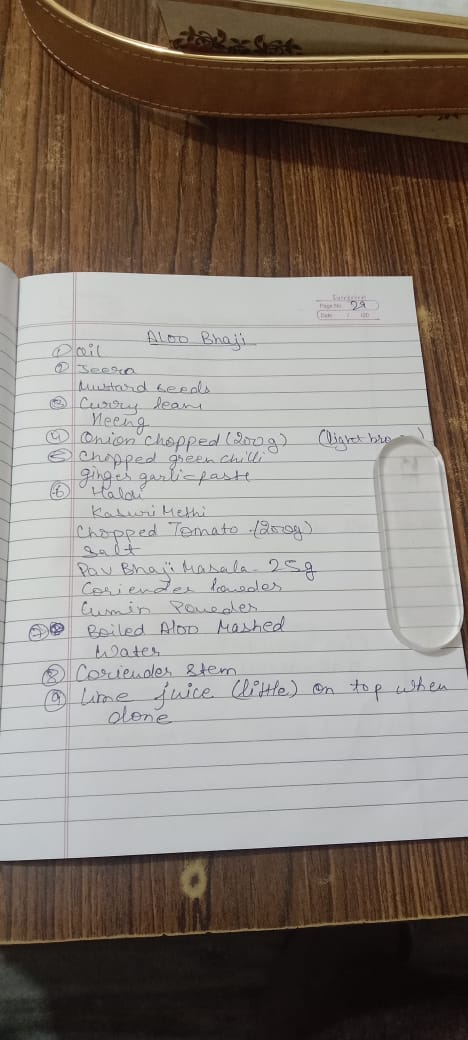 Page No. 29
Date / /20
Aloo Bhaji
① Oil
② Jeera
Mustard seeds
③ Curry leaves
Heeng
④ Onion chopped (200g) (light
⑤ Chopped green chilli
ginger garlic paste
⑥ Haldi
Kasuri Methi
Chopped Tomato - (200g)
Salt
Pav Bhaji Masala - 25g
Coriender Powder
Cumin Powder
⑦ Boiled Aloo Mashed
Water
⑧ Coriender Stem
⑨ Lime juice (little) on top when
done